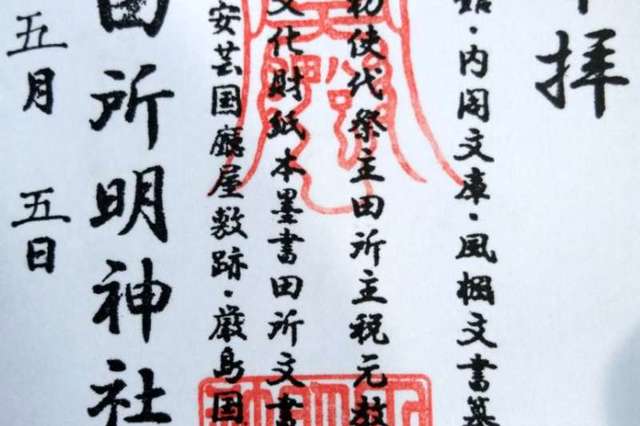 拝
・内閣文庫・風文書墓
勅使代祭主田所主税元教
文化財紙本墨書田所文書
安芸国廳屋敷跡・厳島国
田所明神社
五月 五日